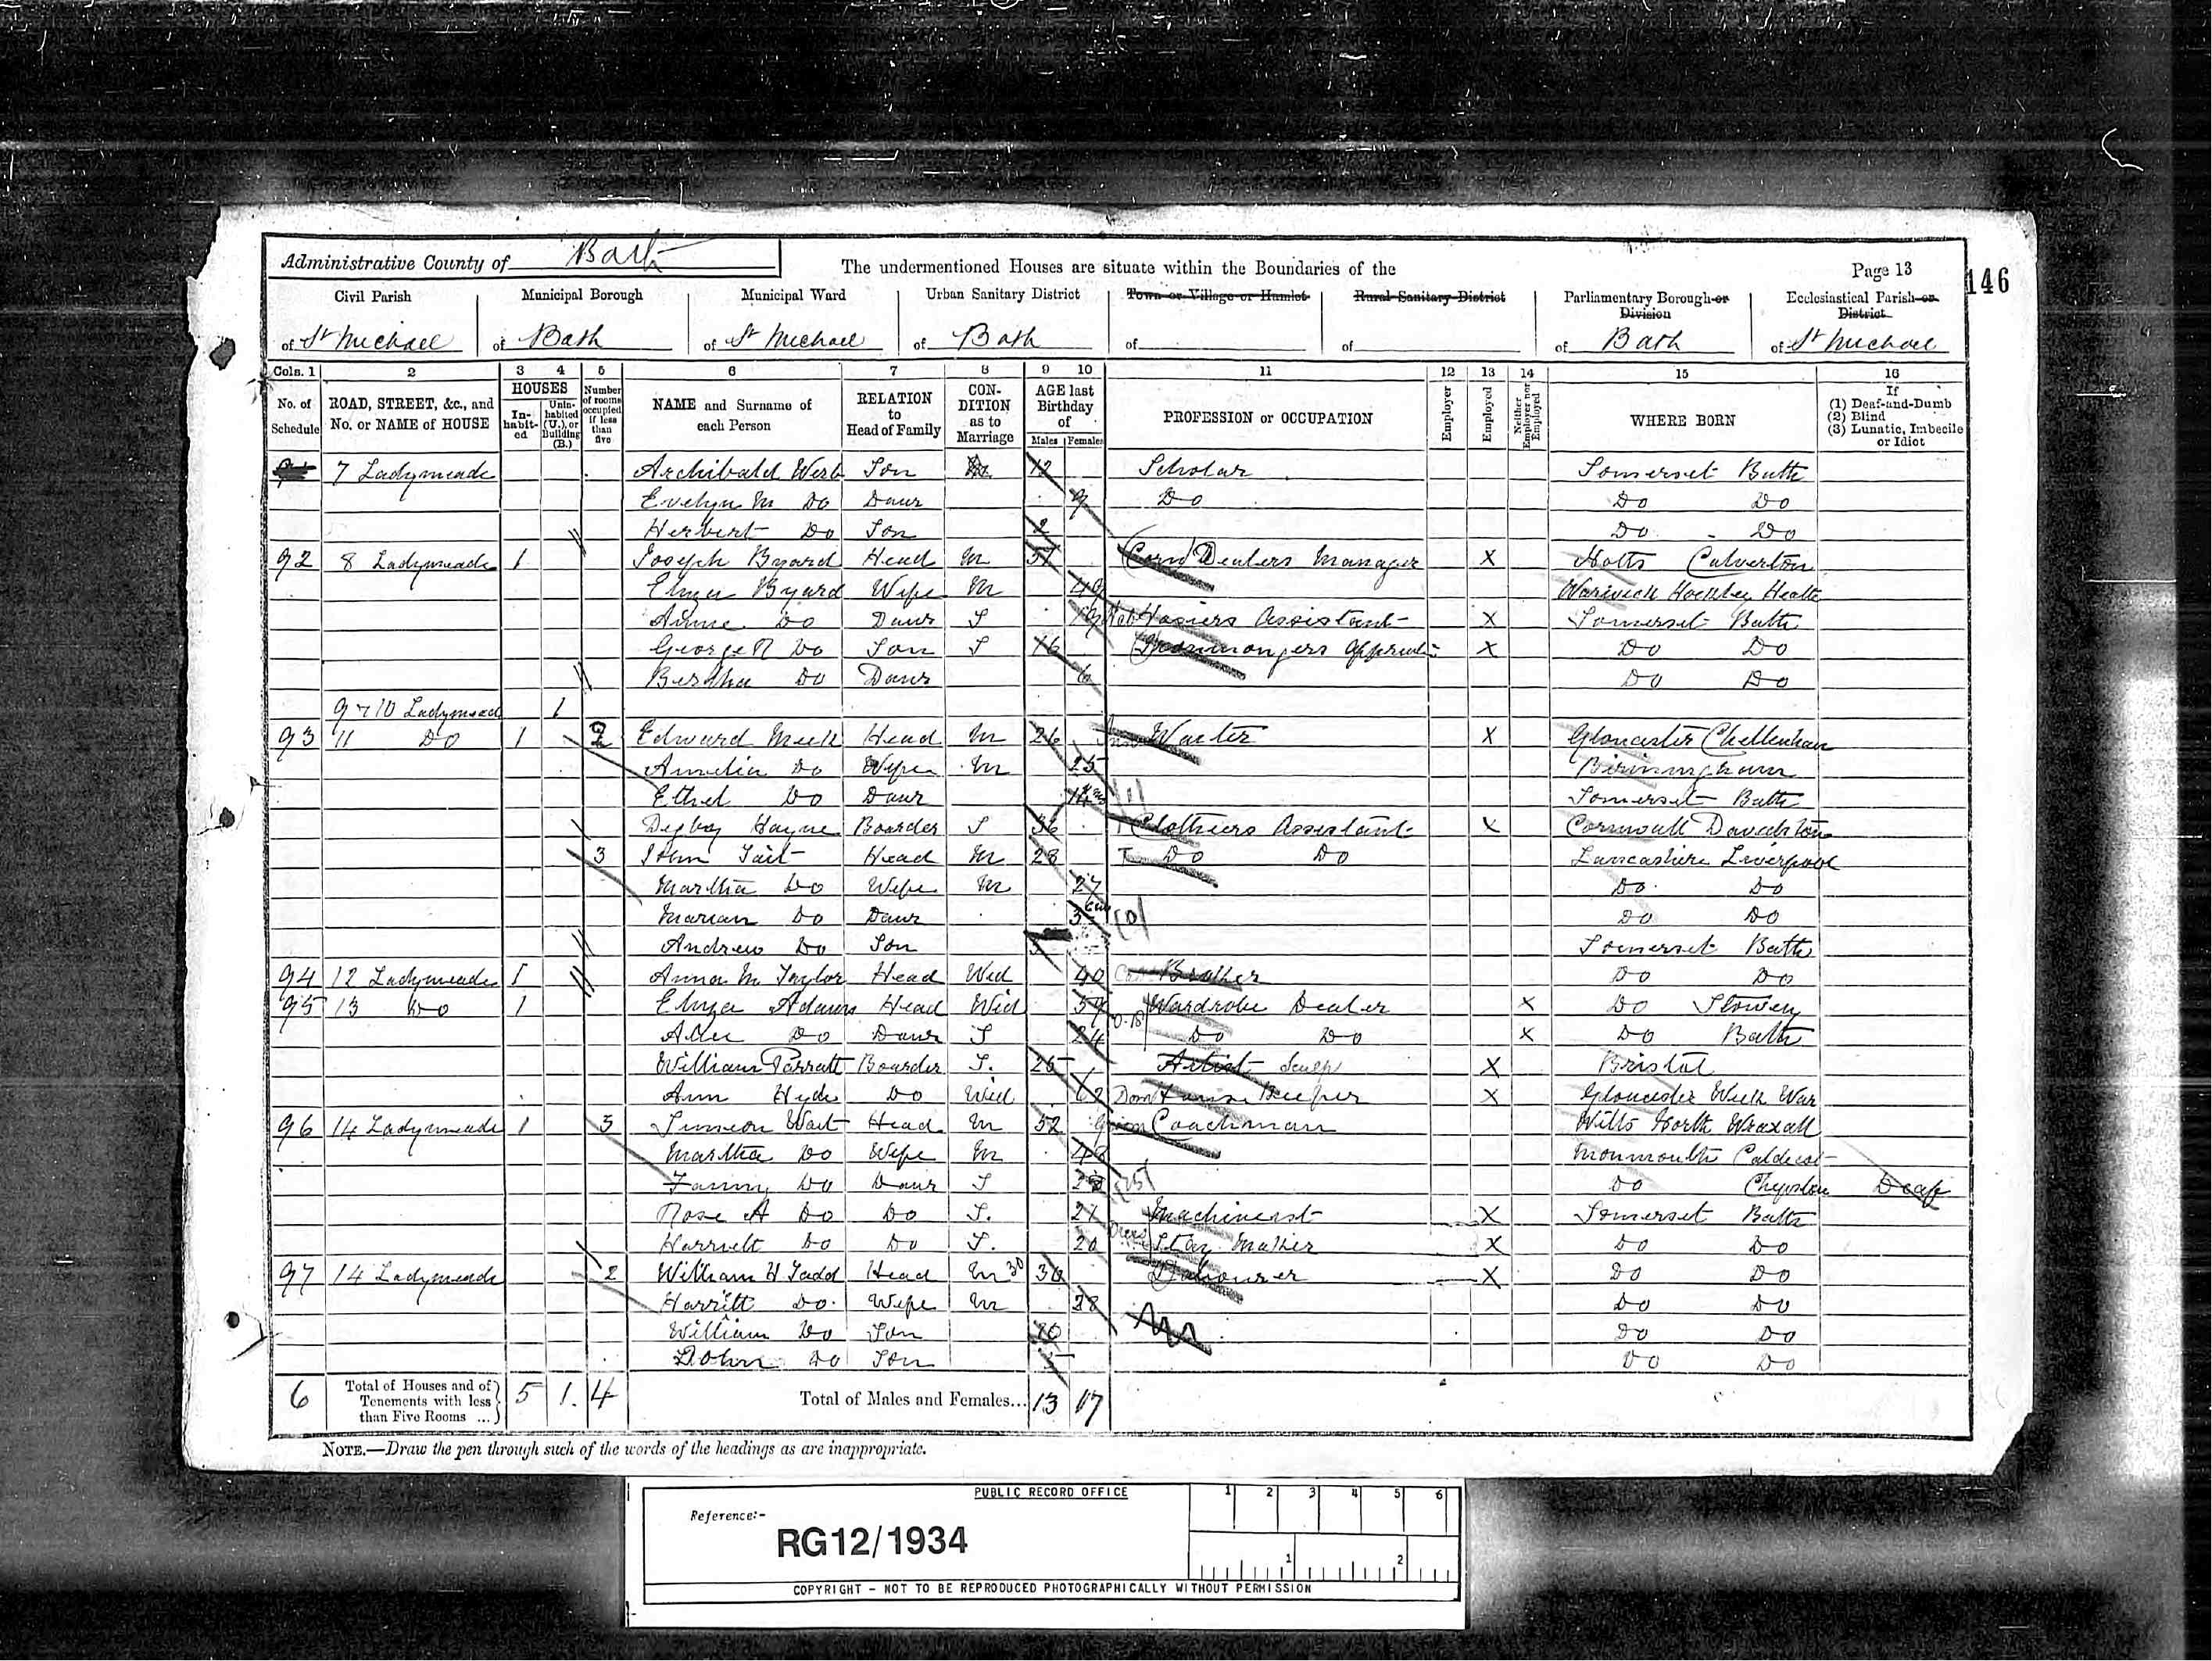 Administrative County of Bath
The undermentioned Houses are situate within the Boundaries of the
Page 13
146
Civil Parish
Municipal Borough
Municipal Ward
Urban Sanitary District
Town or Village or Hamlet
Rural Sanitary District
Parliamentary Borough or Division
Ecclesiastical Parish or District
of St Michael
of Bath
of St Michael
of Bath
of
of
of Bath
of St Michael
Cols. 1 2 3 4 5 6 7 8 9 10 11 12 13 14 15 16
No. of Schedule
ROAD, STREET, &c., and No. or NAME of HOUSE
HOUSES
In-habit-ed
Unin-habited (U.), or Building (B.)
Number of rooms occupied if less than five
NAME and Surname of each Person
RELATION to Head of Family
CON-DITION as to Marriage
AGE last Birthday of
Males Females
PROFESSION or OCCUPATION
Employer
Employed
Neither Employer nor Employed
WHERE BORN
If
(1) Deaf-and-Dumb
(2) Blind
(3) Lunatic, Imbecile or Idiot
7 Ladymeade Archibald Son 12 Scholar Somerset Bath
Evelyn M Do Daur 9 Do Do Do
Herbert Do Son 2 Do Do
92 8 Ladymeade 1 Joseph Byard Head M 51 Corn Dealers Manager X Notts Calverton
Eliza Byard Wife M 49 Warwick Hockley Heath
Annie Do Daur S 19 Hosiers Assistant X Somerset Bath
George Do Son S 16 Ironmongers X Do Do
Bertha Do Daur 6 Do Do
9 10 Ladymead 1
93 11 Do 1 2 Edward Head M 26 Waiter X Gloucester Cheltenham
Amelia Do Wife M 25 Birmingham
Ethel Do Daur Somerset Bath
Digby Hayne Boarder S 36 Clothiers Assistant X Cornwall
3 John Tait Head M 28 Do Do Lancashire Liverpool
Martha Do Wife M 27 Do Do
Marian Do Daur 3 Do Do
Andrew Do Son Somerset Bath
94 12 Ladymeade 1 Anna M Taylor Head Wid 40 Do Do
95 13 Do 1 Eliza Adams Head Wid 57 Wardrobe Dealer X Do Stowey
Do Daur S 24 Do Do X Do Bath
William Parratt Boarder S. 25 Artist Sculp X Bristol
Ann Hyde Do Wid 62 House Keeper X Gloucester Wick War
96 14 Ladymeade 1 3 Simeon Wait Head M 52 Coachman Wilts North Wraxall
Martha Do Wife M Monmouth Caldecot
Fanny Do Daur S Do Chepstow Deaf
Rose A Do Do S. 21 Machinist X Somerset Bath
Harriett Do Do S. 20 Stay Maker X Do Do
97 14 Ladymeade 2 William H Tadd Head M 30 Labourer X Do Do
Harriett Do. Wife M 28 Do Do
William Do Son 10 Do Do
John Do Son 5 Do Do
6 Total of Houses and of Tenements with less than Five Rooms ... 5 1. 4 Total of Males and Females... 13 17
NOTE.—Draw the pen through such of the words of the headings as are inappropriate.
PUBLIC RECORD OFFICE
Reference:-
RG12/1934
1 2 3 4 5 6
1 2
COPYRIGHT - NOT TO BE REPRODUCED PHOTOGRAPHICALLY WITHOUT PERMISSION